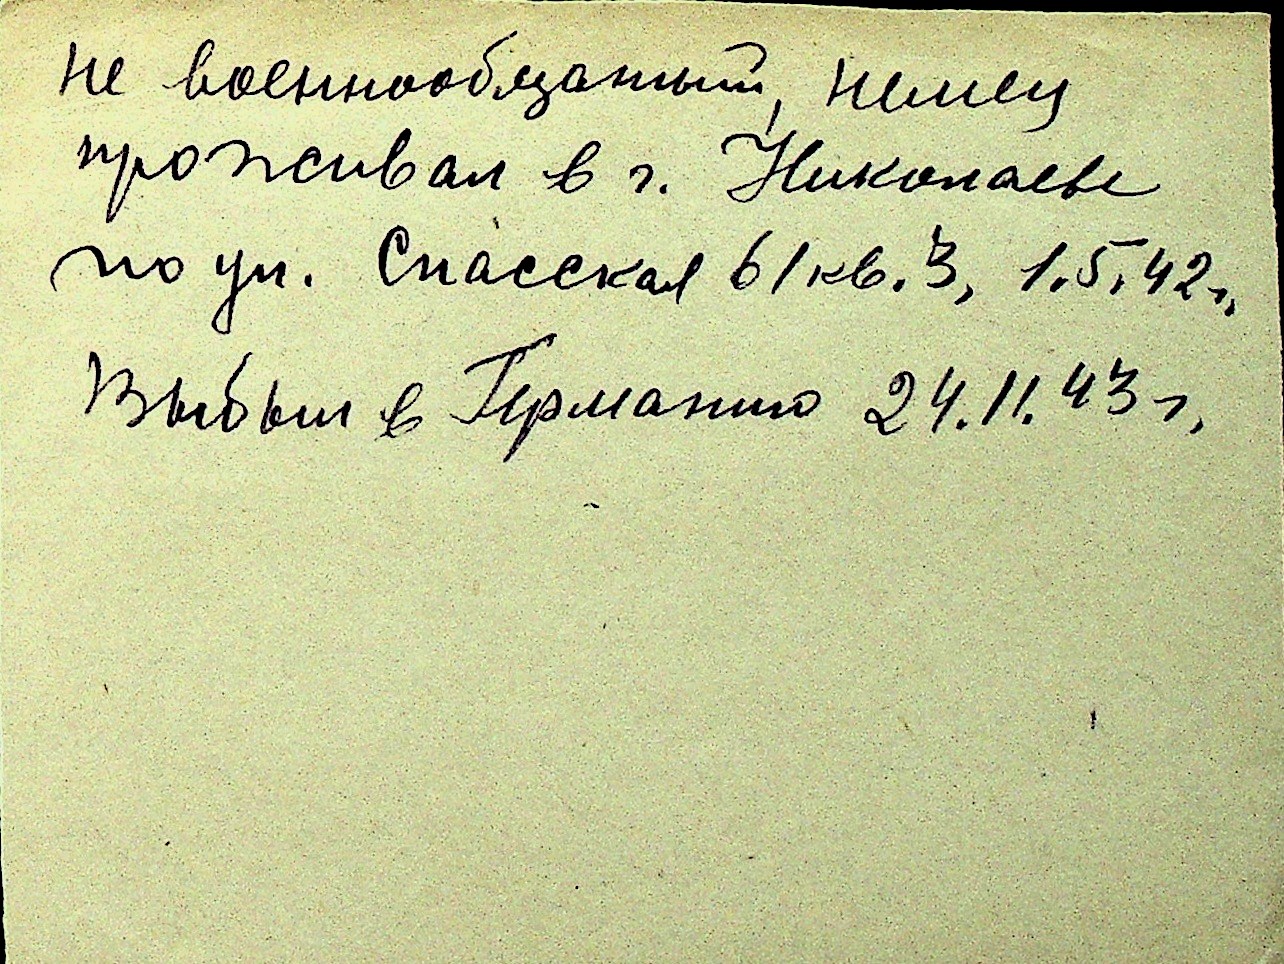 не военнообязанный, немец
проживал в г. Николаеве
по ул. Спасская 61 кв. 3, 1.5.42 г.,
Выбыл в Германию 24.11.43 г.,